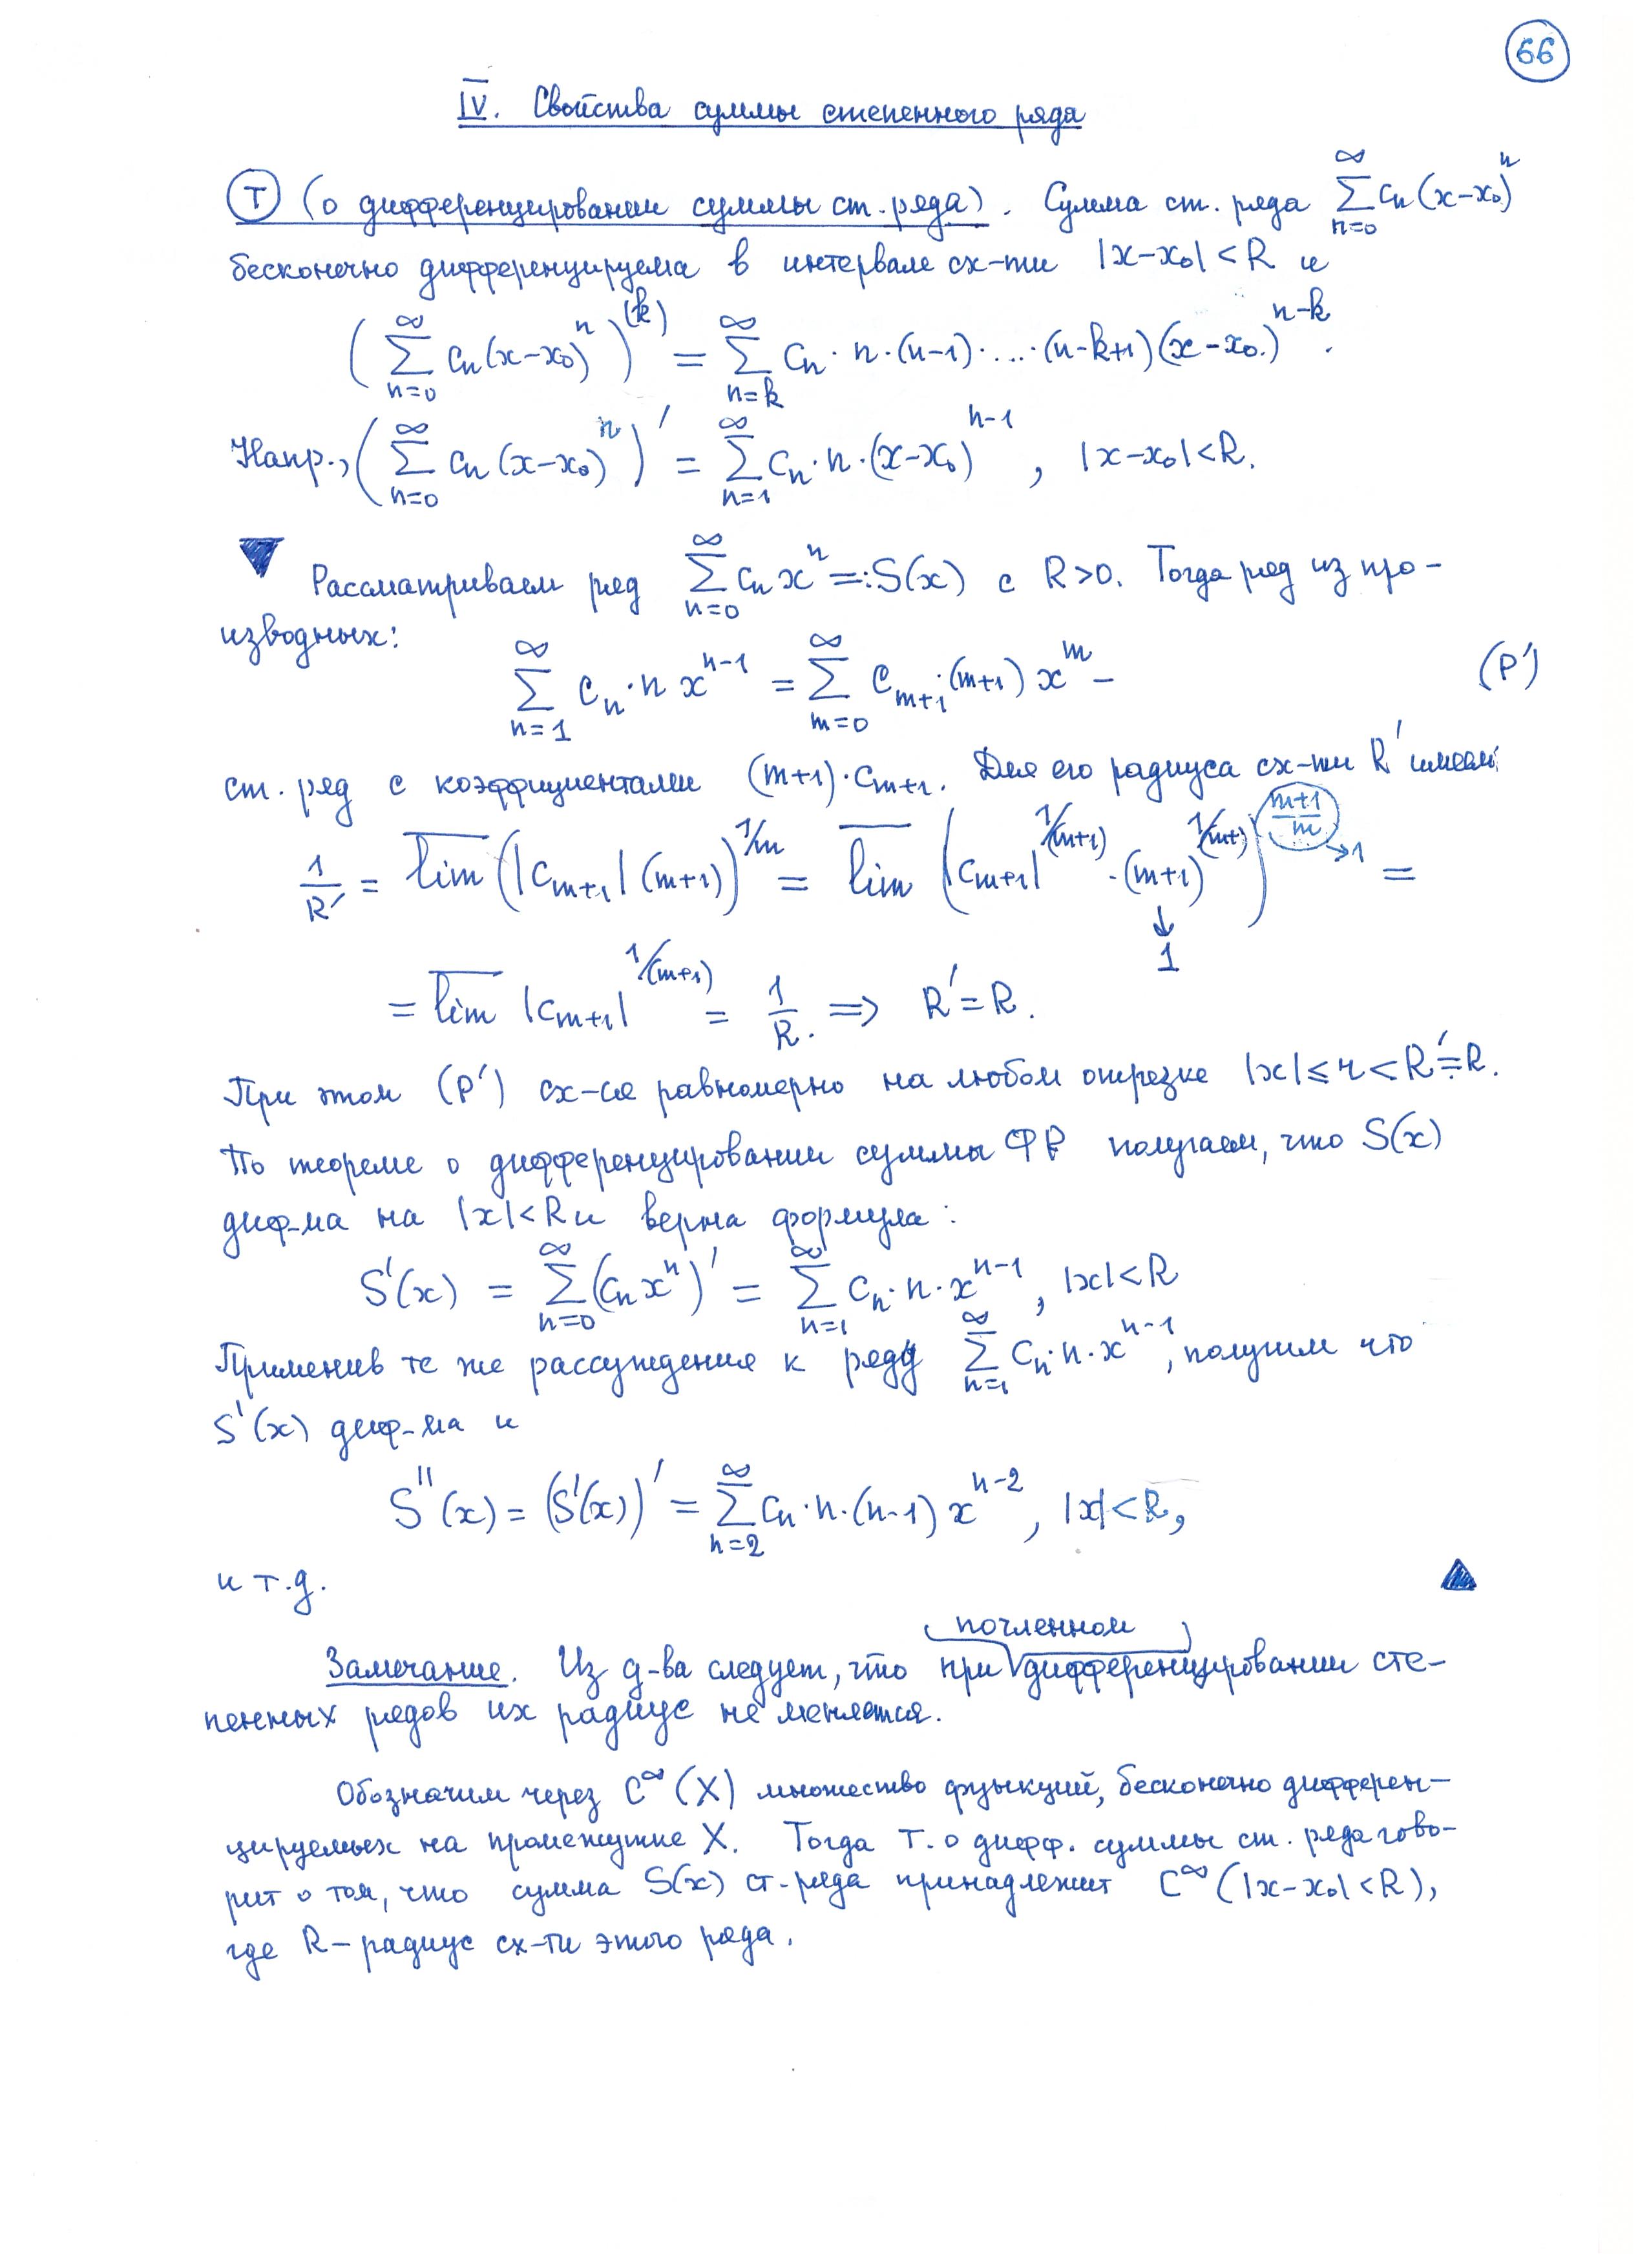 66
IV. Свойства суммы степенного ряда
Т (о дифференцировании суммы ст. ряда). Сумма ст. ряда ∑_{n=0}^{∞} cₙ(x−x₀)ⁿ
бесконечно дифференцируема в интервале сх-ти |x−x₀|<R и
(∑_{n=0}^{∞} cₙ(x−x₀)ⁿ)^{(k)} = ∑_{n=k}^{∞} cₙ·n·(n−1)·...·(n−k+1)(x−x₀)^{n−k}.
Напр., (∑_{n=0}^{∞} cₙ(x−x₀)ⁿ)′ = ∑_{n=1}^{∞} cₙ·n·(x−x₀)^{n−1}, |x−x₀|<R.
▼ Рассматриваем ряд ∑_{n=0}^{∞} cₙxⁿ=:S(x) с R>0. Тогда ряд из про-
изводных:
∑_{n=1}^{∞} cₙ·n x^{n−1} = ∑_{m=0}^{∞} c_{m+1}·(m+1) x^m − (P′)
ст. ряд с коэффициентами (m+1)·c_{m+1}. Для его радиуса сх-ти R′ имеем:
1/R′ = \overline{lim} (|c_{m+1}|(m+1))^{1/m} = \overline{lim} (|c_{m+1}|^{1/(m+1)}·(m+1)^{1/(m+1)})^{(m+1)/m →1} =
↓
1
= \overline{lim} |c_{m+1}|^{1/(m+1)} = 1/R. ⟹ R′=R.
При этом (P′) сх-ся равномерно на любом отрезке |x|≤r<R′=R.
По теореме о дифференцировании суммы ФР получаем, что S(x)
диф-ма на |x|<R и верна формула:
S′(x) = ∑_{n=0}^{∞} (cₙxⁿ)′ = ∑_{n=1}^{∞} cₙ·n·x^{n−1}, |x|<R
Применив те же рассуждения к ряду ∑_{n=1}^{∞} cₙ·n·x^{n−1}, получим что
S′(x) диф-ма и
S″(x) = (S′(x))′ = ∑_{n=2}^{∞} cₙ·n·(n−1) x^{n−2}, |x|<R,
и т.д. ▲
почленном
Замечание. Из д-ва следует, что при дифференцировании сте-
пенных рядов их радиус не меняется.
Обозначим через C^∞(X) множество функций, бесконечно дифферен-
цируемых на промежутке X. Тогда т. о дифф. суммы ст. ряда гово-
рит о том, что сумма S(x) ст. ряда принадлежит C^∞(|x−x₀|<R),
где R – радиус сх-ти этого ряда.